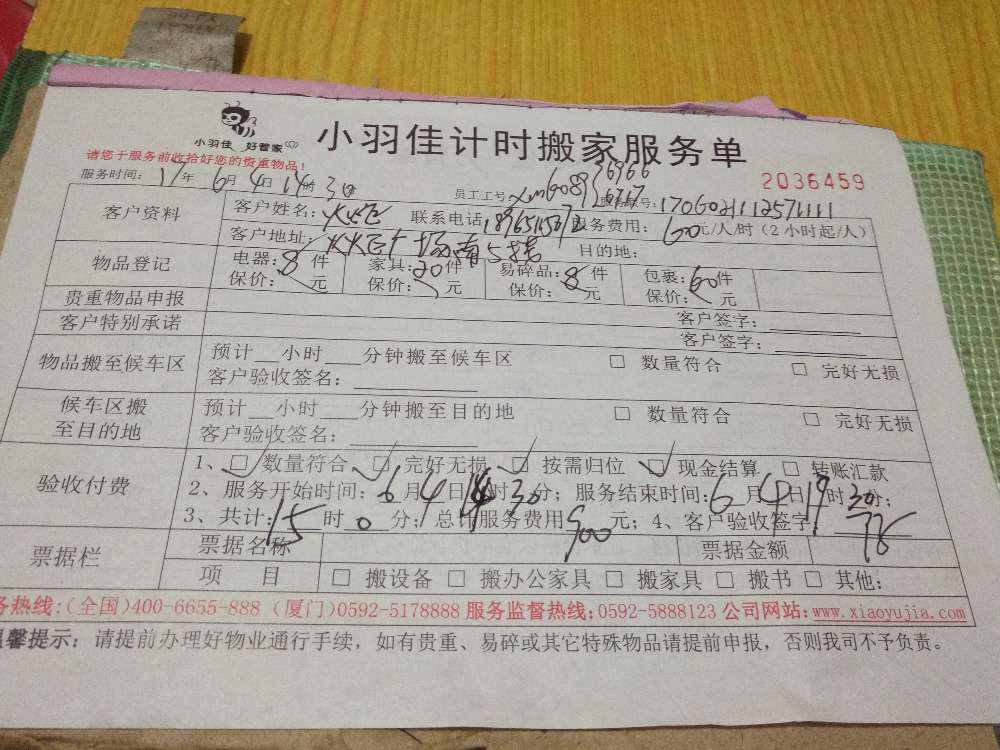 小羽佳 好管家
小羽佳计时搬家服务单
请您于服务前收拾好您的贵重物品!
2036459
服务时间: 17年 6月 4日 14时 30
员工工号
客户资料
客户姓名:
联系电话
服务费用: 60元/人/时（2小时起/人）
客户地址:
目的地:
物品登记
电器: 8件 家具: 20件 易碎品: 8件 包裹: 60件
保价: 元 保价: 元 保价: 元 保价: 元
贵重物品申报
客户签字:
客户特别承诺
客户签字:
物品搬至候车区
预计__小时___分钟搬至候车区 □ 数量符合 □ 完好无损
客户验收签名:
候车区搬至目的地
预计__小时___分钟搬至目的地 □ 数量符合 □ 完好无损
客户验收签名:
验收付费
1、☑ 数量符合 ☑ 完好无损 ☑ 按需归位 ☑ 现金结算 □ 转账汇款
2、服务开始时间: 6月4日14时30分; 服务结束时间: 6月4日19时30分;
3、共计: 15时0分; 总计服务费用900元; 4、客户验收签字
票据栏
票据名称 票据金额
项 目 □ 搬设备 □ 搬办公家具 □ 搬家具 □ 搬书 □ 其他:
务热线:(全国)400-6655-888 (厦门)0592-5178888 服务监督热线:0592-5888123 公司网站:www.xiaoyujia.com
温馨提示: 请提前办理好物业通行手续，如有贵重、易碎或其它特殊物品请提前申报，否则我司不予负责。